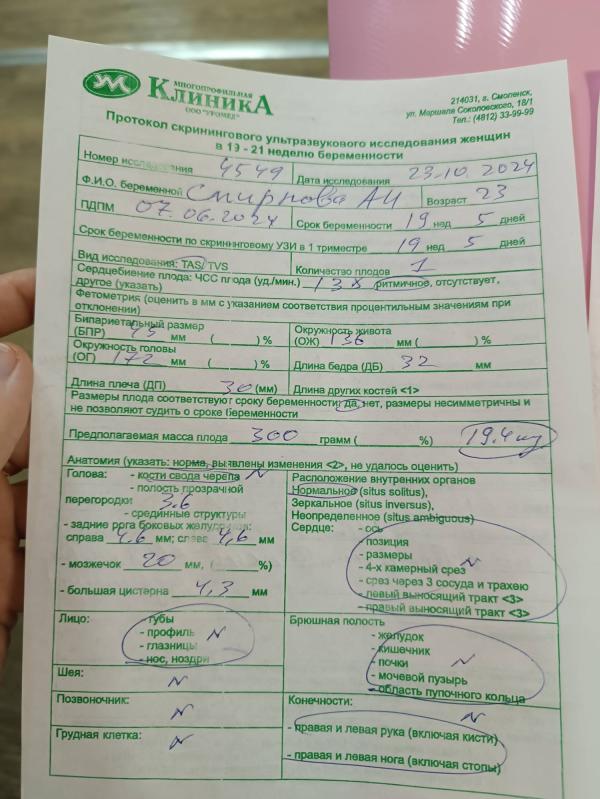 УМ
МНОГОПРОФИЛЬНАЯ
КЛИНИКА
ООО "УРОМЕД"
214031, г. Смоленск,
ул. Маршала Соколовского, 18/1
Тел.: (4812) 33-99-99
Протокол скринингового ультразвукового исследования женщин
в 19 - 21 неделю беременности
Номер исследования 4549 Дата исследования 23.10.2024
Ф.И.О. беременной Смирнова АИ Возраст 23
ПДПМ 07.06.2024 Срок беременности 19 нед 5 дней
Срок беременности по скрининговому УЗИ в 1 триместре 19 нед 5 дней
Вид исследования: TAS/ TVS Количество плодов 1
Сердцебиение плода: ЧСС плода (уд./мин.) ритмичное, отсутствует,
другое (указать)
Фетометрия (оценить в мм с указанием соответствия процентильным значениям при
отклонении)
Бипариетальный размер
(БПР) 45 мм ( ) %
Окружность живота
(ОЖ) 136 мм ( ) %
Окружность головы
(ОГ) 172 мм ( ) %
Длина бедра (ДБ) 32 мм
Длина плеча (ДП) 30 (мм) Длина других костей <1>
Размеры плода соответствуют сроку беременности: да, нет, размеры несимметричны и
не позволяют судить о сроке беременности
Предполагаемая масса плода 300 грамм ( %) 19.4
Анатомия (указать: норма, выявлены изменения <2>, не удалось оценить)
Голова: - кости свода черепа N
- полость прозрачной
перегородки 3.6
- срединные структуры
- задние рога боковых желудочков:
справа 4.6 мм; слева 4,6 мм
- мозжечок 20 мм, ( %)
- большая цистерна 4,3 мм
Расположение внутренних органов
Нормальное (situs solitus),
Зеркальное (situs inversus),
Неопределенное (situs ambiguous)
Сердце: - ось
- позиция
- размеры
- 4-х камерный срез N
- срез через 3 сосуда и трахею
- левый выносящий тракт <3>
- правый выносящий тракт <3>
Лицо: - губы
- профиль N
- глазницы
- нос, ноздри
Брюшная полость
- желудок
- кишечник
- почки N
- мочевой пузырь
- область пупочного кольца
Шея: N
Позвоночник: N
Грудная клетка: N
Конечности: N
- правая и левая рука (включая кисти)
- правая и левая нога (включая стопы)